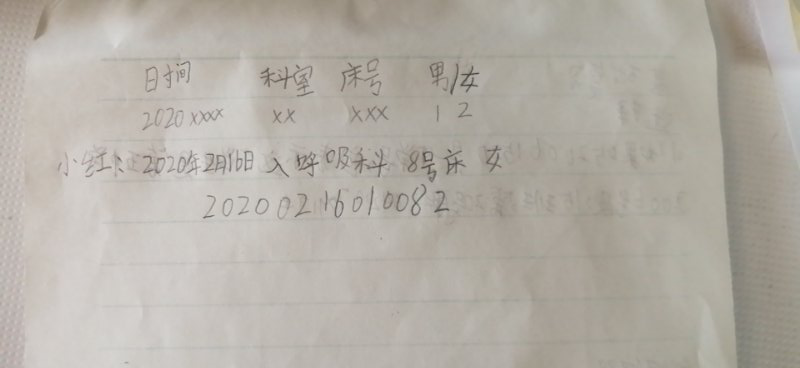 日时间 科室 床号 男/女
2020xxxx xx xxx 1 2
小红: 2020年2月16日入呼吸科 8号床 女
20200216010082